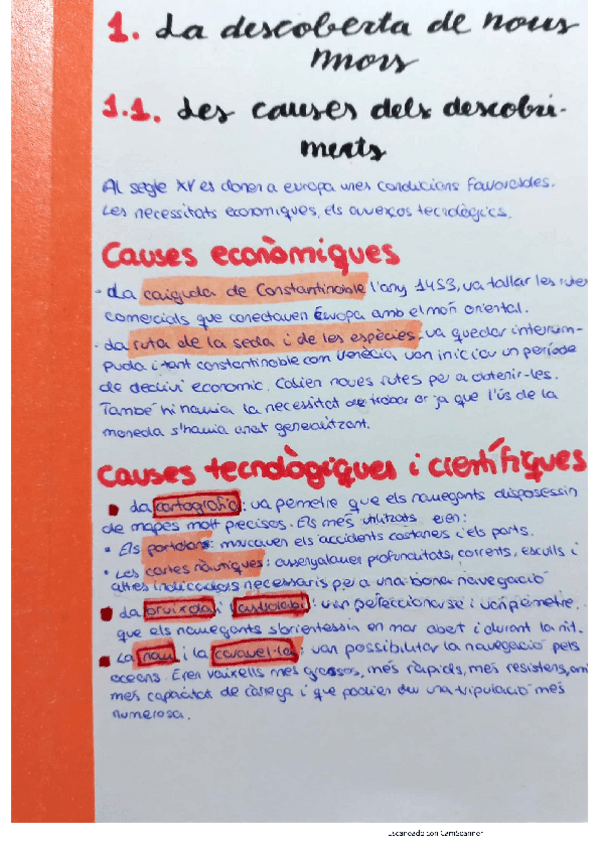 1. La descoberta de nous
mons
1.1. Les causes dels descobri-
ments
Al segle XV es donen a europa unes condicions favorables.
Les necessitats economiques, els avenços tecnològics.
Causes econòmiques
- La caiguda de Constantinoble l'any 1453, va tallar les rutes
comercials que conectaven Europa amb el món oriental.
- La ruta de la seda i de les espècies, va quedar interrum-
puda i tant constantinoble com Venècia van iniciar un període
de declivi economic. Calien noves rutes per a obtenir-les.
També hi havia la necessitat de trobar or ja que l'ús de la
moneda s'havia anat generalitzant.
Causes tecnològiques i científiques
La cartografia: va permetre que els navegants disposessin
de mapes molt precisos. Els més utilitzats eren:
• Els portolans: marcaven els accidents costaners i els ports.
• Les cartes nàutiques: assenyalaven profunditats, corrents, esculls i
altres indicadors necessaris per a una bona navegació
La brúixola i l'astrolabi: van perfeccionar-se i van permetre.
que els navegants s'orientessin en mar obert i durant la nit.
La nau i la caravel·la: van possibilitar la navegació pels
oceans. Eren vaixells més grossos, més ràpids, més resistens, amb
més capacitat de càrrega i que podien dur una tripulació més
numerosa.
Escaneado con CamScanner